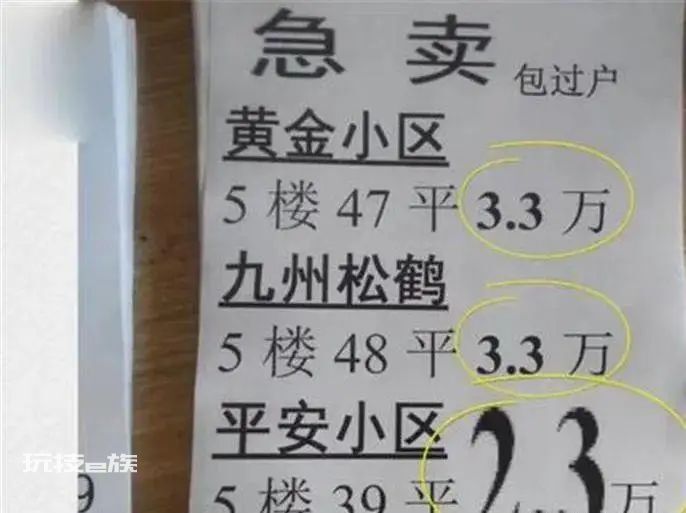 急 卖 包过户
黄金小区
5 楼 47 平 3.3 万
九州松鹤
5 楼 48 平 3.3 万
平安小区
5 楼 39 平 2.3 万
玩技e族
9